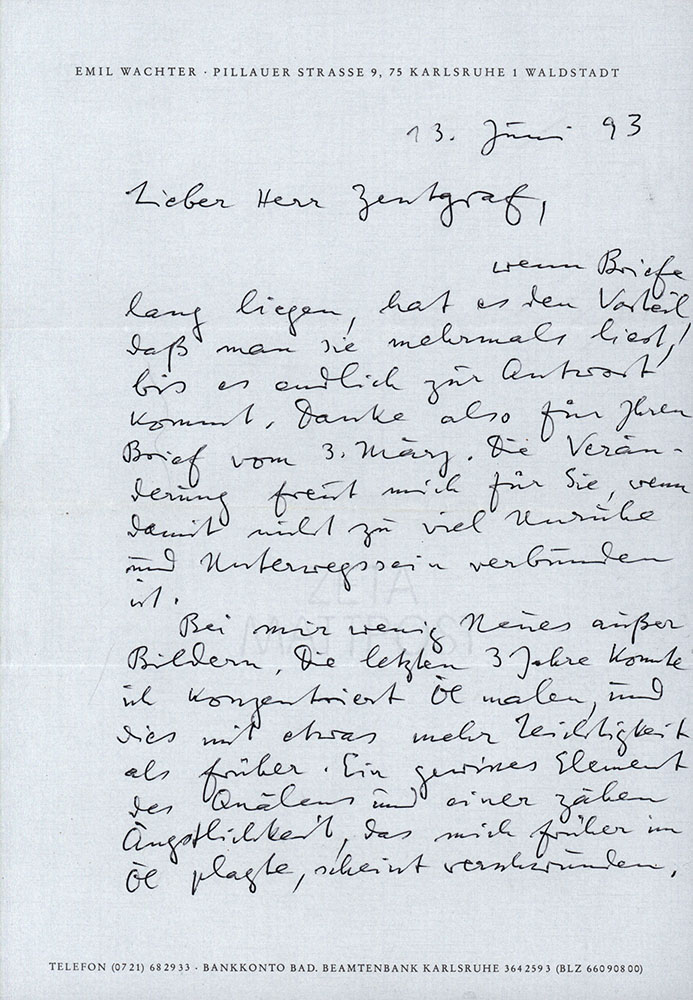 EMIL WACHTER · PILLAUER STRASSE 9, 75 KARLSRUHE 1 WALDSTADT
13. Juni 93
Lieber Herr Zentgraf,
wenn Briefe
lang liegen, hat es den Vorteil,
daß man sie mehrmals liest,
bis es endlich zur Antwort
kommt. Danke also für Ihren
Brief vom 3. März. Die Verän-
derung freut mich für Sie, wenn
damit nicht zu viel Unruhe
und Unterwegssein verbunden
ist.
Bei mir wenig Neues außer
Bildern. Die letzten 3 Jahre konnte
ich konzentriert Öl malen, und
dies mit etwas mehr Leichtigkeit
als früher. Ein gewisses Element
des Quälens und einer zähen
Ängstlichkeit, das mich früher im
Öl plagte, scheint verschwunden,
TELEFON (0721) 682933 · BANKKONTO BAD. BEAMTENBANK KARLSRUHE 3642593 (BLZ 66090800)